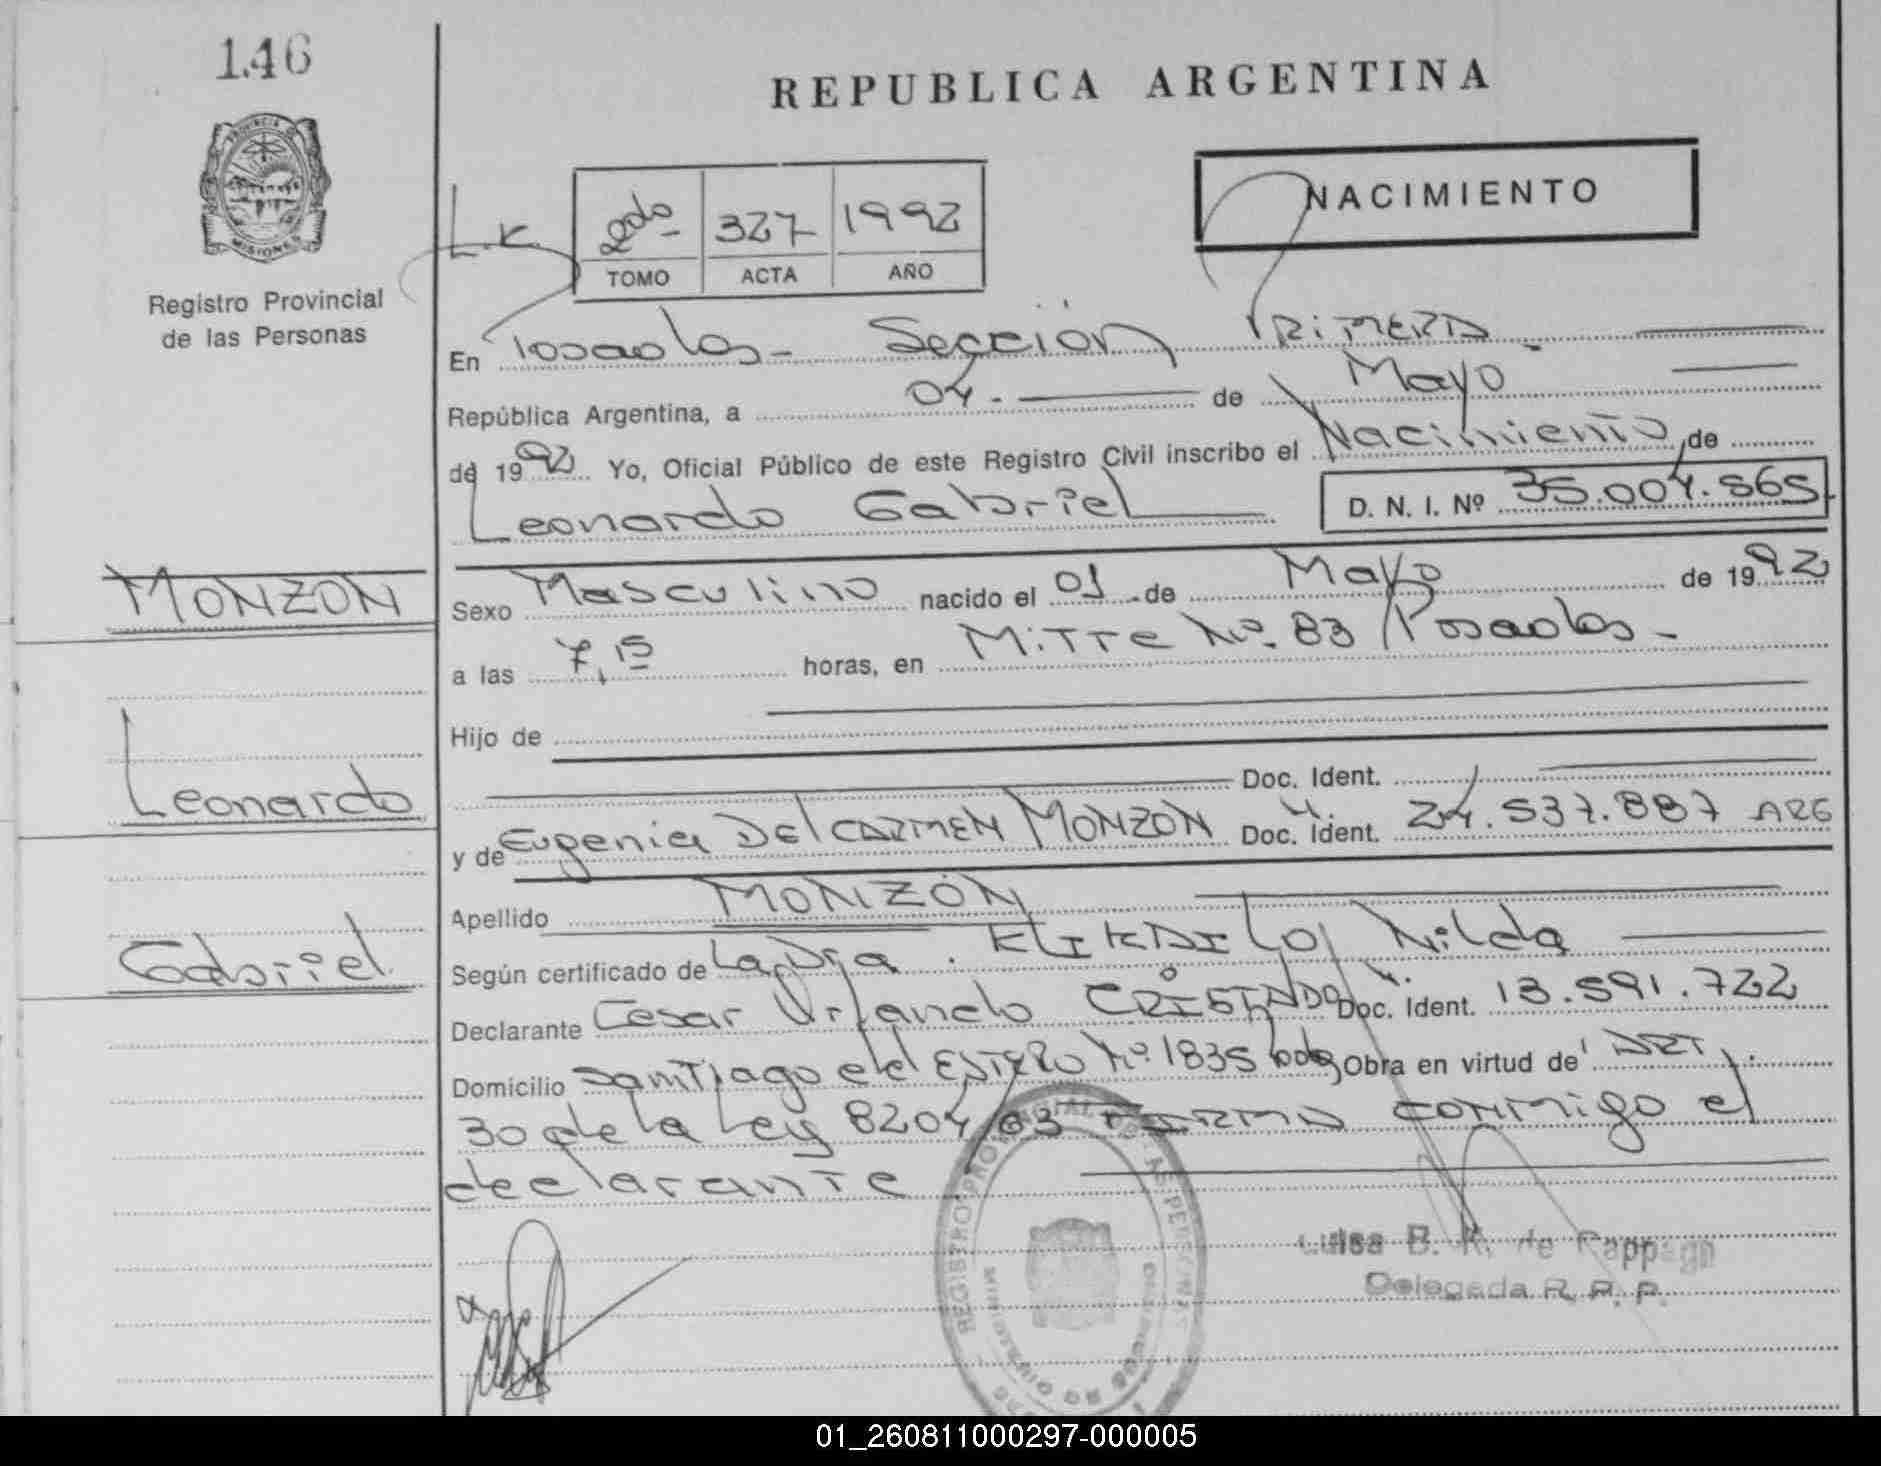 146
REPUBLICA ARGENTINA
PROVINCIA DE
MISIONES
Registro Provincial
de las Personas
NACIMIENTO
2do 327 1992
TOMO ACTA AÑO
En Posadas - Sección PRIMERA
República Argentina, a 04 de Mayo
de 1992 Yo, Oficial Público de este Registro Civil inscribo el Nacimiento de
Leonardo Gabriel D. N. I. Nº 35.004.565
MONZON
Sexo Masculino nacido el 01 de Mayo de 1992
a las 7,15 horas, en Mitre Nº 83 Posadas -
Hijo de
Doc. Ident.
Leonardo
y de Eugenia Del CARMEN MONZON Doc. Ident. 24.537.887 ARG
Apellido MONZÓN
Gabriel
Según certificado de La Dra. Nilda
Declarante Cesar Orlando Doc. Ident. 13.591.722
Domicilio Santiago del ESTERO Nº 1835 Obra en virtud de ART.
30 de la Ley 8204/63 FIRMA conmigo el
declarante
REGISTRO PROVINCIAL DE LAS PERSONAS
Luisa B. K. de
Delegada R. P. P.
01_260811000297-000005